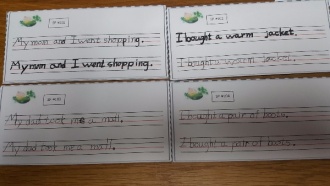 My mom and I went shopping.
My mom and I went shopping.
I bought a warm jacket.
I bought a warm jacket.
My dad took me a mall.
My dad took me a mall.
I bought a pair of
I bought a pair of